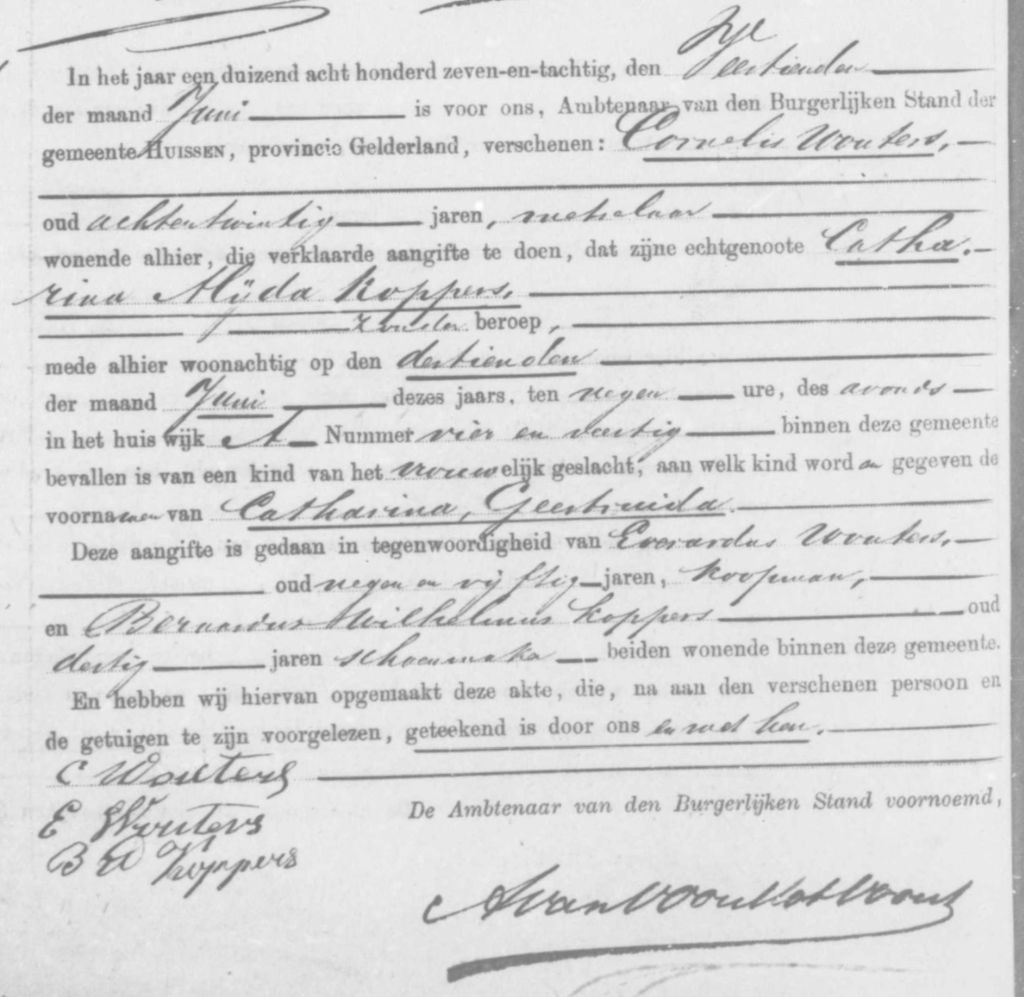 In het jaar een duizend acht honderd zeven-en-tachtig, den Veertienden
der maand Juni is voor ons, Ambtenaar van den Burgerlijken Stand der
gemeente HUISSEN, provincie Gelderland, verschenen: Cornelis Wouters,
oud achtentwintig jaren, metselaar
wonende alhier, die verklaarde aangifte te doen, dat zijne echtgenoote Catha
rina Alijda Koppers,
zonder beroep,
mede alhier woonachtig op den dertienden
der maand Juni dezes jaars, ten negen ure, des avonds
in het huis wijk A Nummer vier en veertig binnen deze gemeente
bevallen is van een kind van het vrouwelijk geslacht, aan welk kind worden gegeven de
voornamen van Catharina, Geertruida.
Deze aangifte is gedaan in tegenwoordigheid van Everardus Wouters,
oud negen en vijftig jaren, koopman,
en Bernardus Wilhelmus Koppers oud
dertig jaren schoenmaker beiden wonende binnen deze gemeente.
En hebben wij hiervan opgemaakt deze akte, die, na aan den verschenen persoon en
de getuigen te zijn voorgelezen, geteekend is door ons en met hen.
C Wouters
E Wouters
De Ambtenaar van den Burgerlijken Stand voornoemd,
B W Koppers